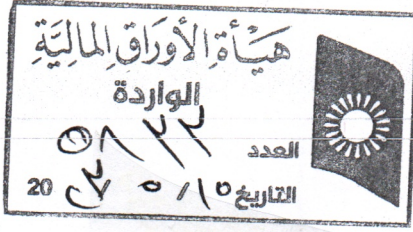 هَيْأَةُ الأَوْرَاقِ المَالِيَّةِ
الواردة
العدد
التاريخ ١٥ / ٥ 20